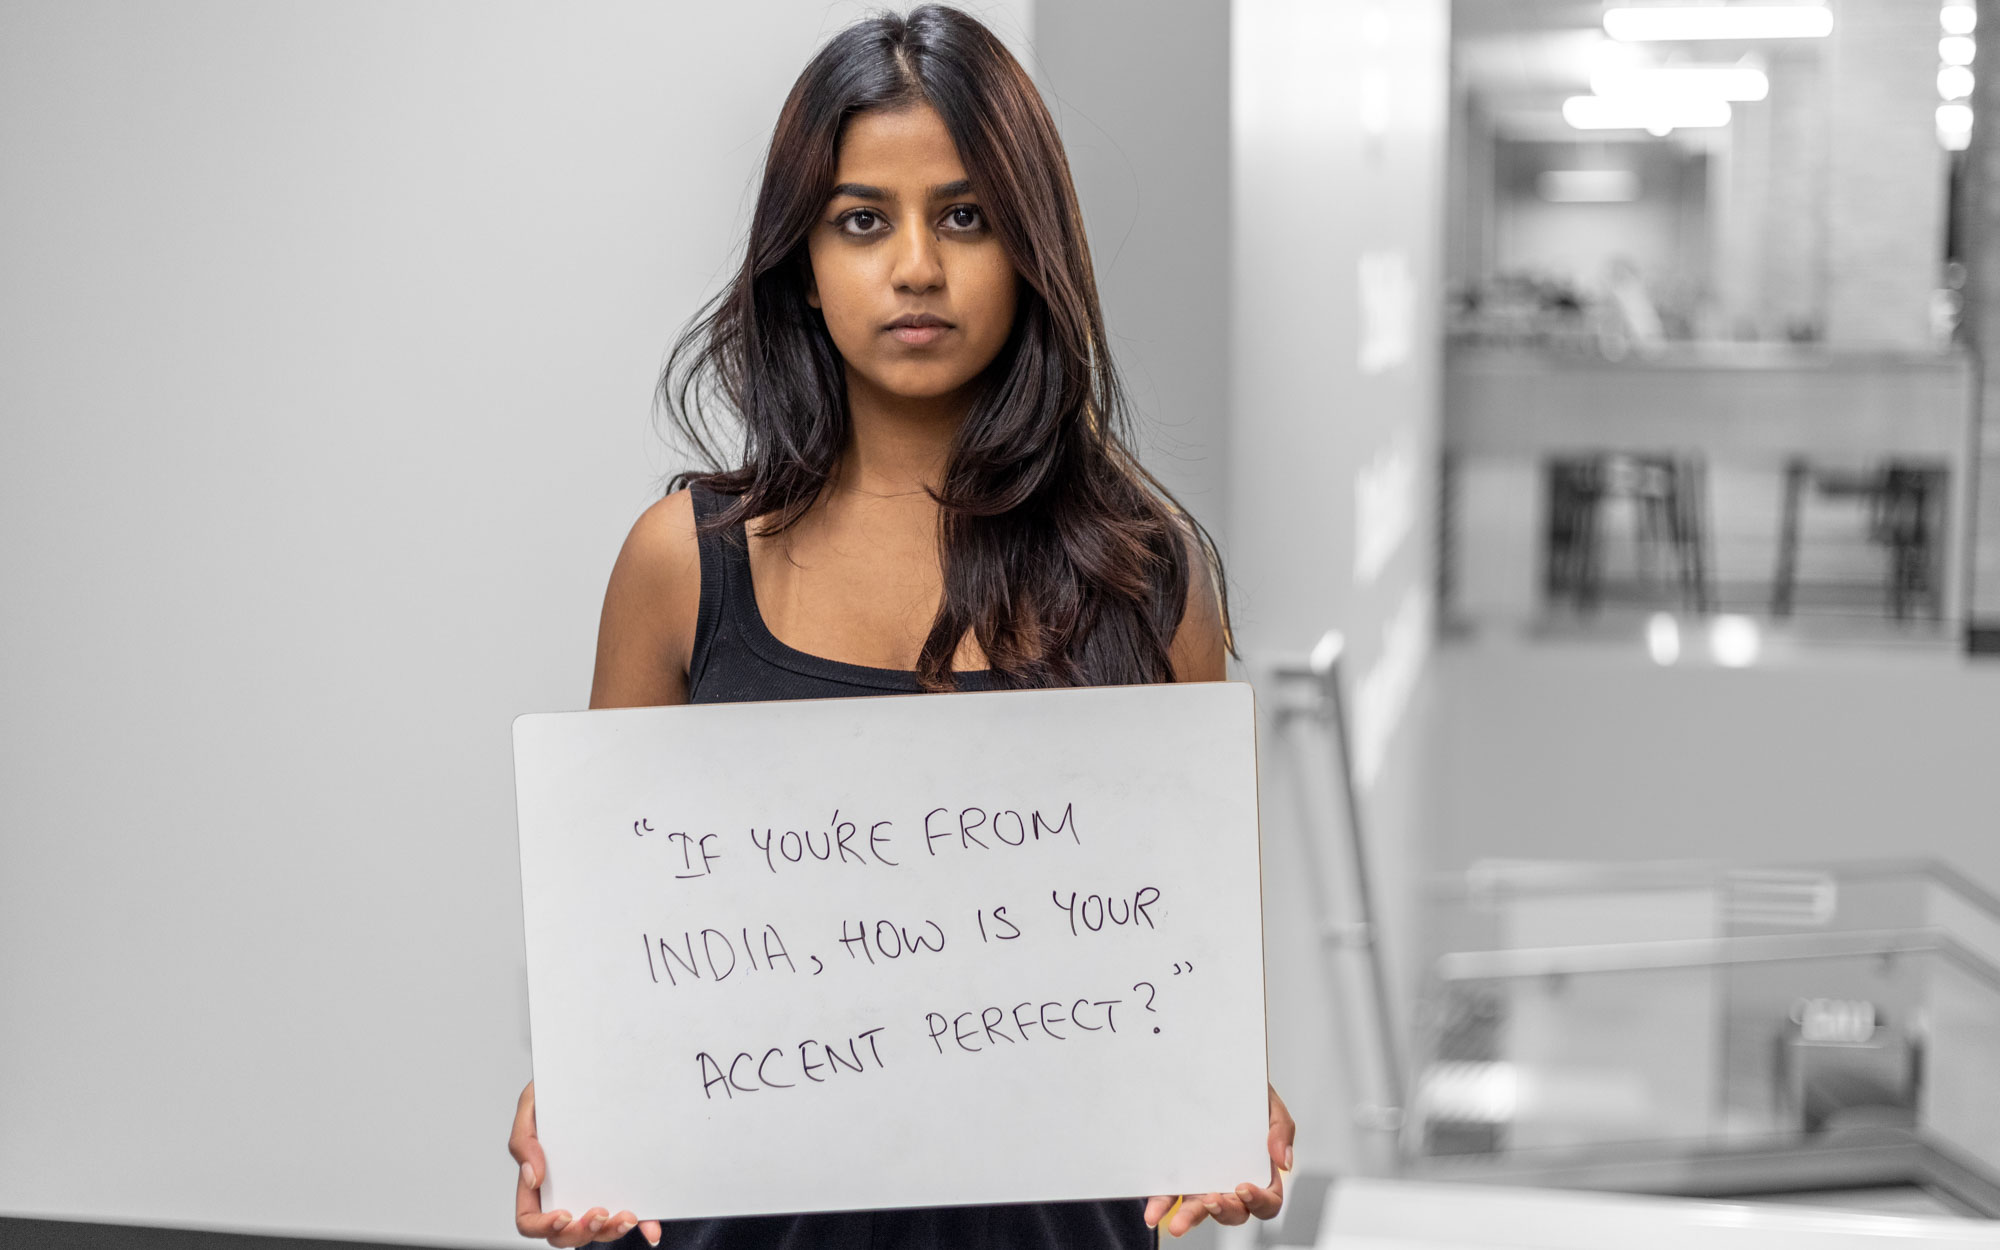 “IF YOU'RE FROM
INDIA, HOW IS YOUR
ACCENT PERFECT?”